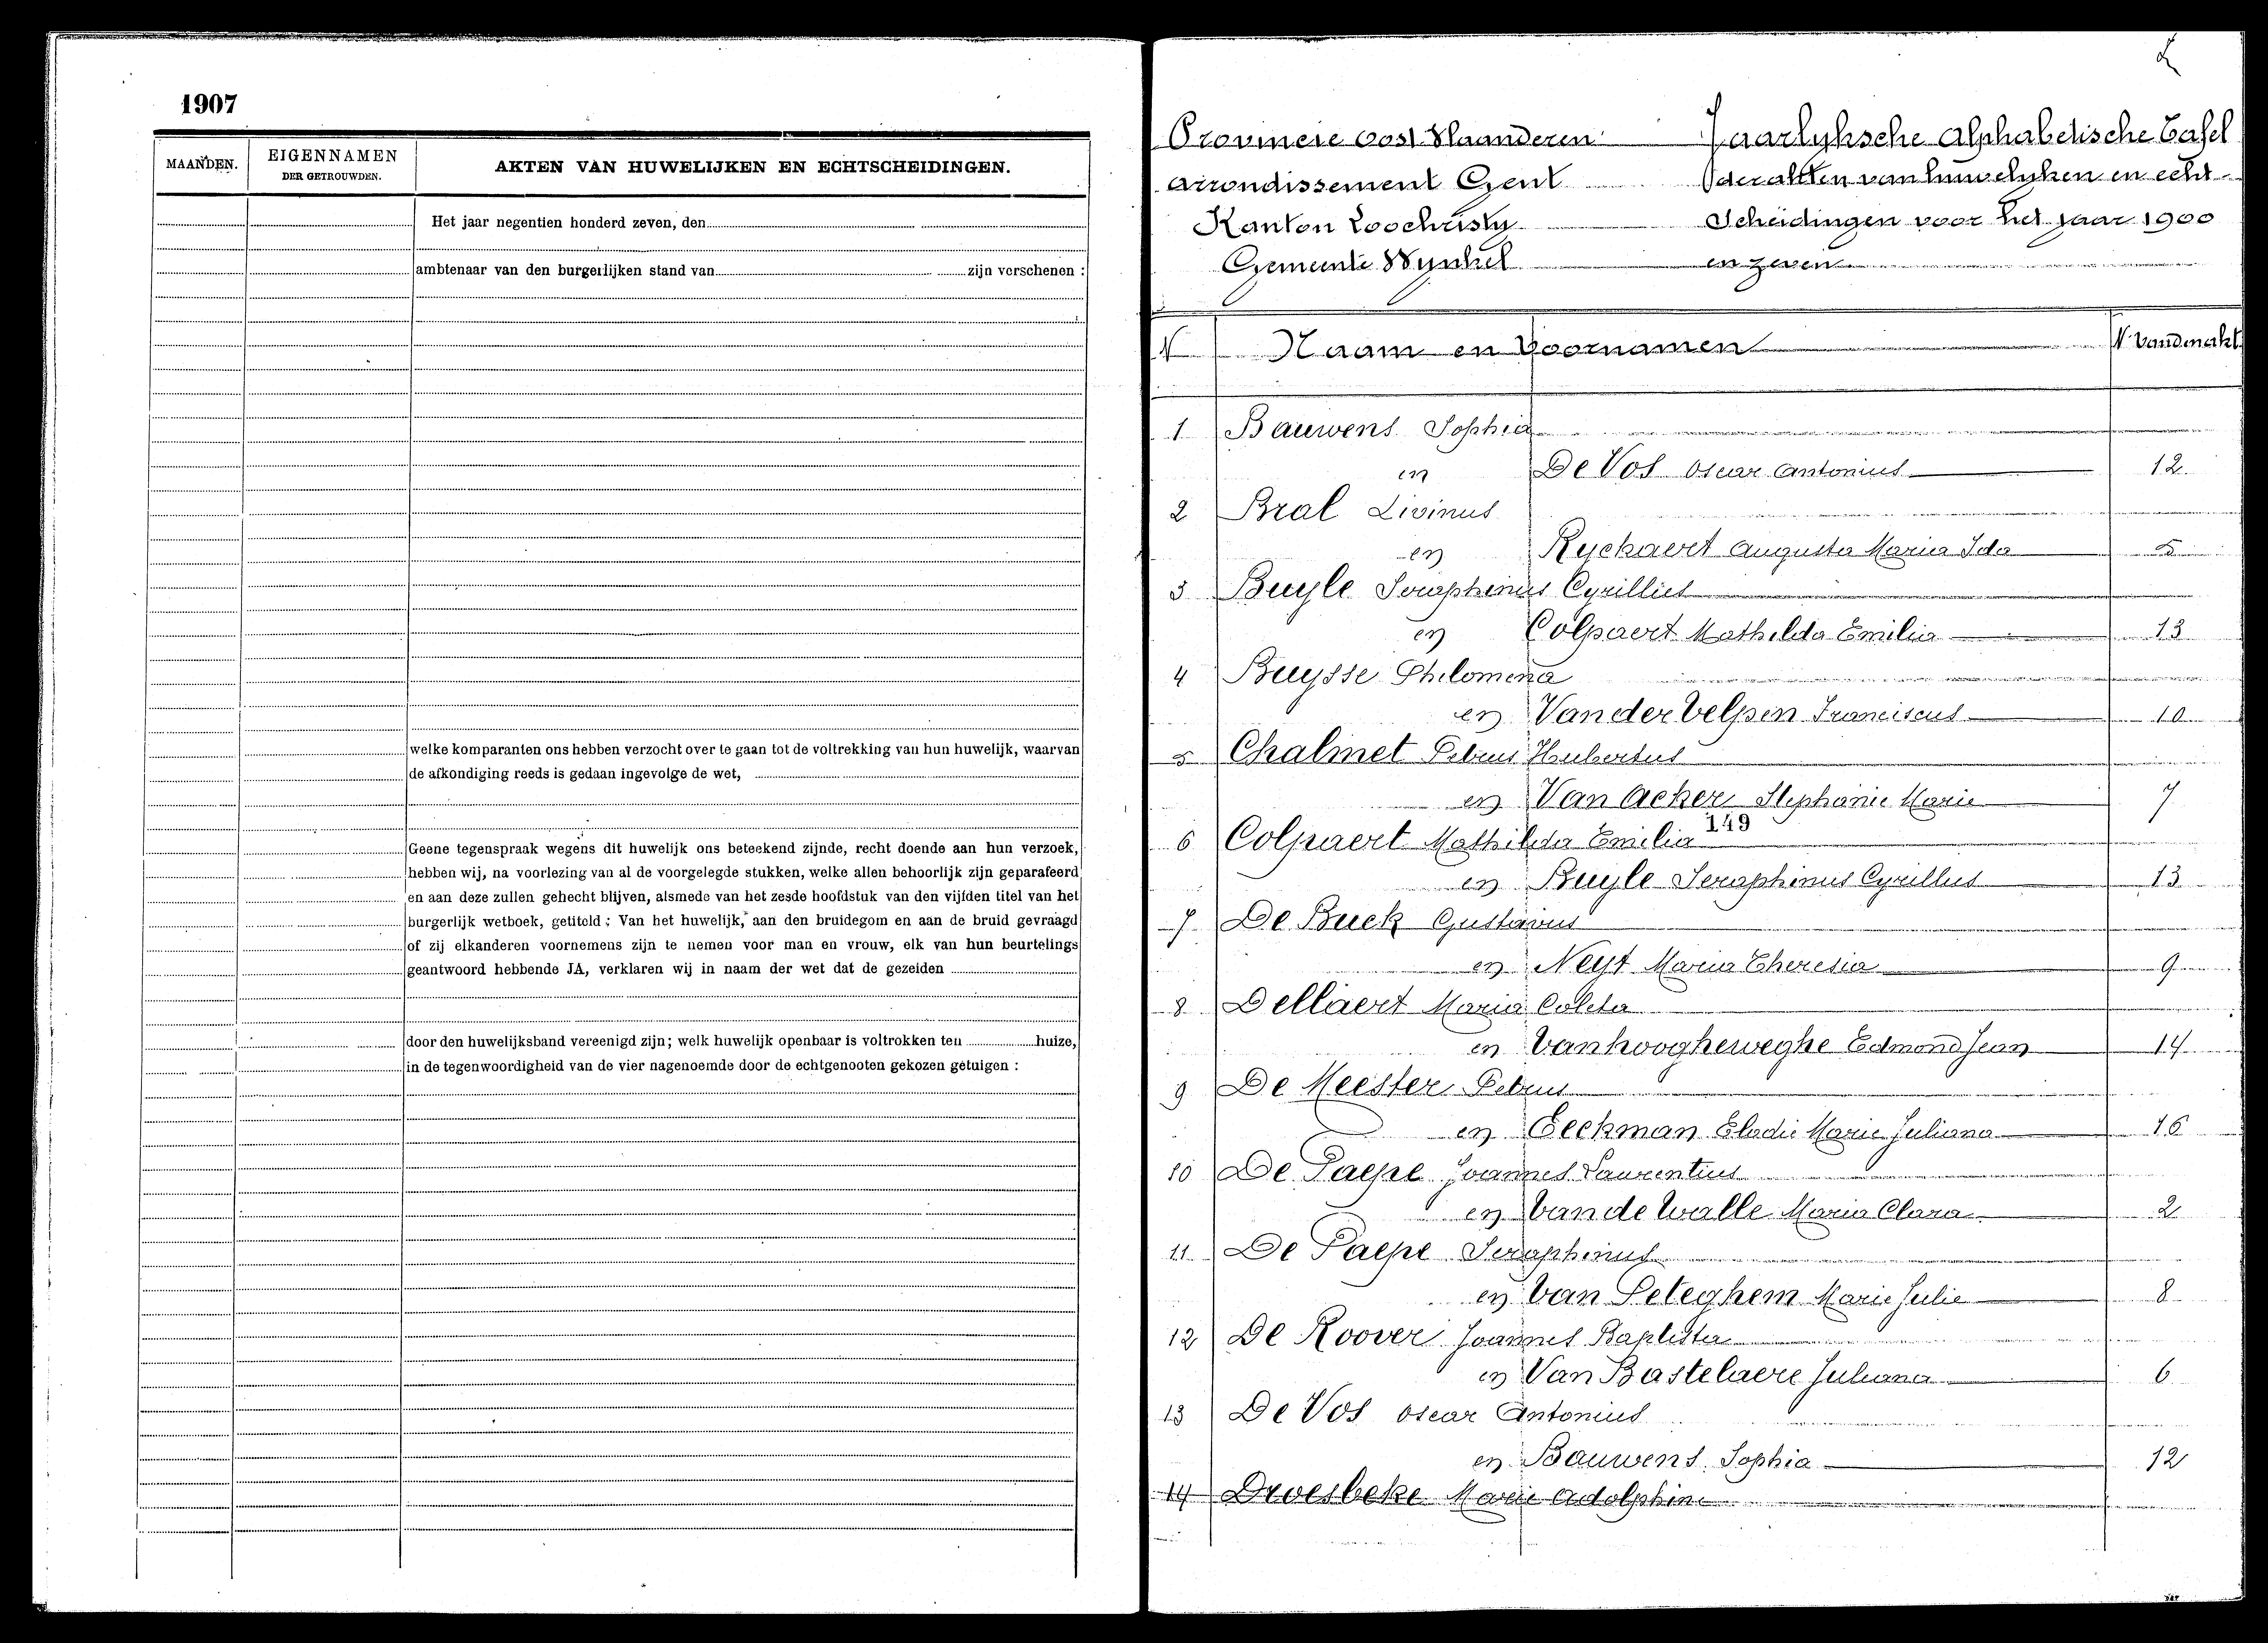 1907
MAANDEN.
EIGENNAMEN
DER GETROUWDEN.
AKTEN VAN HUWELIJKEN EN ECHTSCHEIDINGEN.
Het jaar negentien honderd zeven, den
ambtenaar van den burgerlijken stand van zijn verschenen :
welke komparanten ons hebben verzocht over te gaan tot de voltrekking van hun huwelijk, waarvan
de afkondiging reeds is gedaan ingevolge de wet,
Geene tegenspraak wegens dit huwelijk ons beteekend zijnde, recht doende aan hun verzoek,
hebben wij, na voorlezing van al de voorgelegde stukken, welke allen behoorlijk zijn geparafeerd
en aan deze zullen gehecht blijven, alsmede van het zesde hoofdstuk van den vijfden titel van het
burgerlijk wetboek, getiteld : Van het huwelijk, aan den bruidegom en aan de bruid gevraagd
of zij elkanderen voornemens zijn te nemen voor man en vrouw, elk van hun beurtelings
geantwoord hebbende JA, verklaren wij in naam der wet dat de gezeiden
door den huwelijksband vereenigd zijn; welk huwelijk openbaar is voltrokken ten huize,
in de tegenwoordigheid van de vier nagenoemde door de echtgenooten gekozen getuigen :
Provincie Oost Vlaanderen
Arrondissement Gent
Kanton Loochristy
Gemeente Wynkel
Jaarlyksche Alphabetische Tafel
der akten van huwelyken en echt-
Scheidingen voor het jaar 1900
en zeven
N Naam en Voornamen
1 Bauwens Sophia
en De Vos Oscar Antonius 12
2 Bral Livinus
en Ryckaert Augusta Maria Ida 5
3 Buyle Seraphinus Cyrillus
en Colpaert Mathilda Emilia 13
4 Buysse Philomena
en Vander Velpen Franciscus 10
5 Chalmet Petrus Hubertus
en Van Acker Stephanie Marie 7
149
6 Colpaert Mathilda Emilia
en Buyle Seraphinus Cyrillus 13
7 De Buck Gustavus
en Neyt Maria Theresia 9
8 Dellaert Maria Coleta
en Vanhoogheweghe Edmond Jean 14
9 De Meester Petrus
en Eeckman Elodie Marie Juliana 16
10 De Paepe Joannes Laurentius
en Vande Walle Maria Clara 2
11 De Paepe Seraphinus
en Van Peteghem Marie Julie 8
12 De Roover Joannes Baptista
en Van Bastelaere Juliana 6
13 De Vos Oscar Antonius
en Bauwens Sophia 12
14 Droesbeke Marie Adolphine